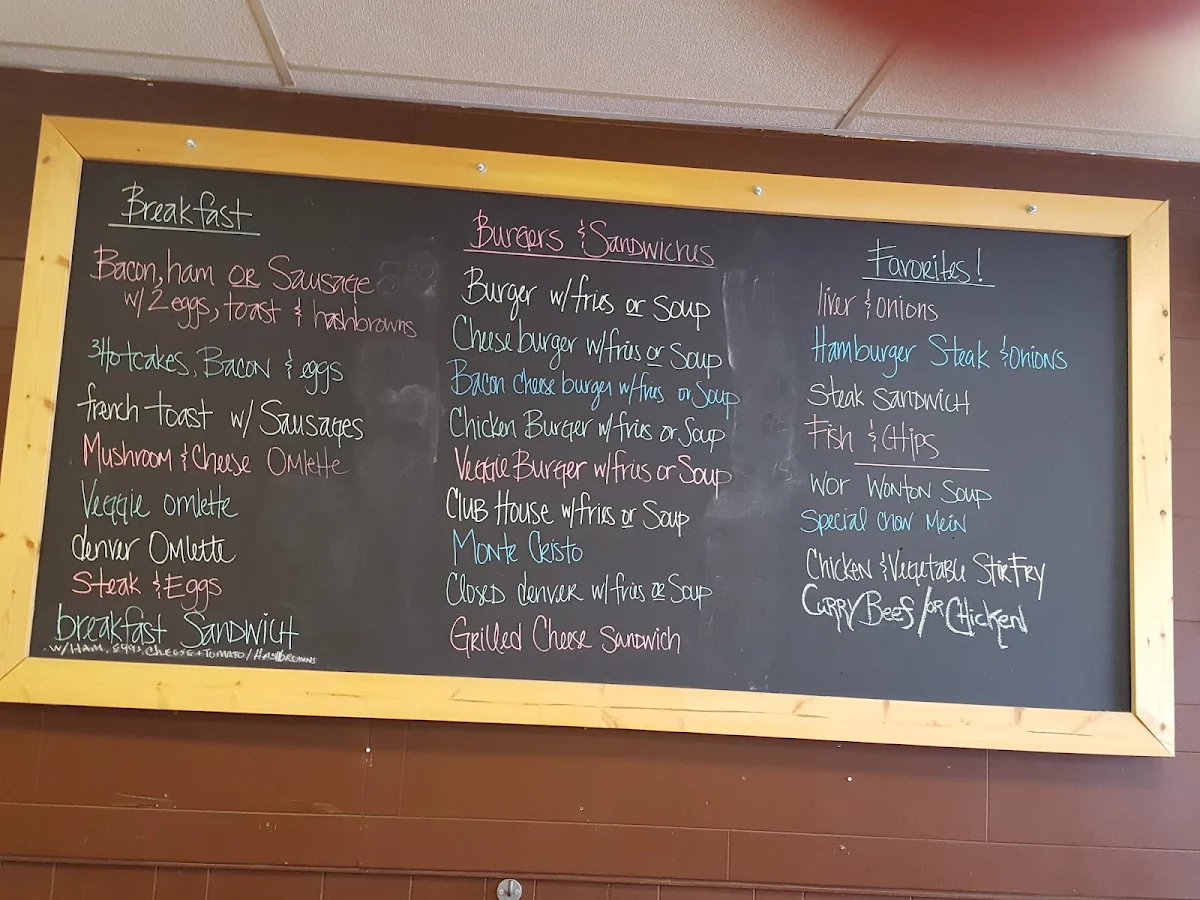 Breakfast
Bacon, ham or Sausage
w/2 eggs, toast & hashbrowns
3 Hotcakes, Bacon & eggs
french toast w/ Sausages
Mushroom & Cheese Omlette
Veggie omlette
denver Omlette
Steak & Eggs
breakfast Sandwich
w/Ham, eggs, cheese + tomato / Hashbrowns
Burgers & Sandwiches
Burger w/fries or Soup
Cheese burger w/fries or Soup
Bacon cheese burger w/fries or Soup
Chicken Burger w/fries or Soup
Veggie Burger w/fries or Soup
Club House w/fries or Soup
Monte Cristo
Closed denver w/fries or Soup
Grilled Cheese Sandwich
Favorites!
liver & onions
Hamburger Steak & onions
Steak Sandwich
Fish & Chips
Wor Wonton Soup
Special Chow Mein
Chicken & Vegetable Stir Fry
Curry Beef / or Chicken